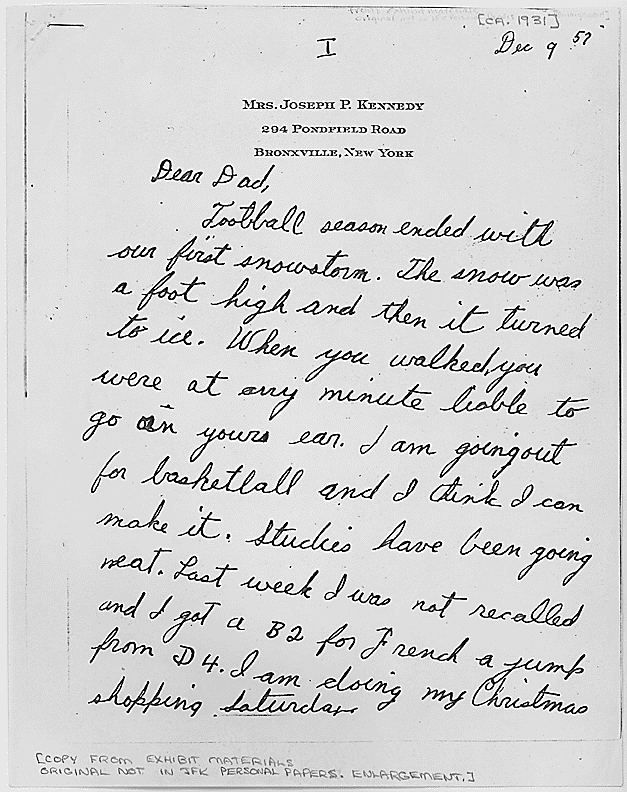 [CA. 1931]
Dec 9 57
I
MRS. JOSEPH P. KENNEDY
294 PONDFIELD ROAD
BRONXVILLE, NEW YORK
Dear Dad,
Football season ended with
our first snowstorm. The snow was
a foot high and then it turned
to ice. When you walked, you
were at any minute liable to
go on yours ear. I am going out
for basketball and I think I can
make it. Studies have been going
neat. Last week I was not recalled
and I got a B2 for French a jump
from D4. I am doing my Christmas
shopping Saturday
[COPY FROM EXHIBIT MATERIALS
ORIGINAL NOT IN JFK PERSONAL PAPERS. ENLARGEMENT.]